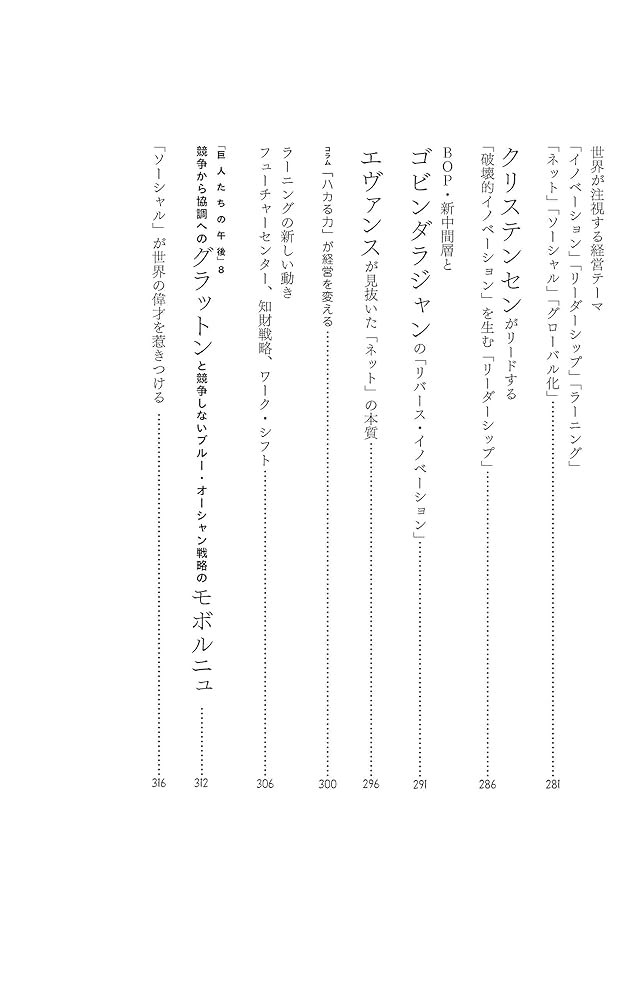 世界が注視する経営テーマ
「イノベーション」「リーダーシップ」「ラーニング」
「ネット」「ソーシャル」「グローバル化」……………………281
クリステンセンがリードする
「破壊的イノベーション」を生む「リーダーシップ」……………………286
BOP・新中間層と
ゴビンダラジャンの「リバース・イノベーション」……………………291
エヴァンスが見抜いた「ネット」の本質……………………296
コラム「ハカる力」が経営を変える……………………300
ラーニングの新しい動き
フューチャーセンター、知財戦略、ワーク・シフト……………………306
「巨人たちの午後」8
競争から協調へのグラットンと競争しないブルー・オーシャン戦略のモボルニュ……………312
「ソーシャル」が世界の偉才を惹きつける……………………316